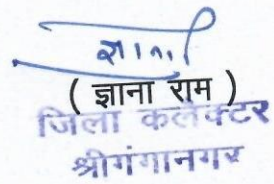 ज्ञाना
( ज्ञाना राम )
जिला कलेक्टर
श्रीगंगानगर